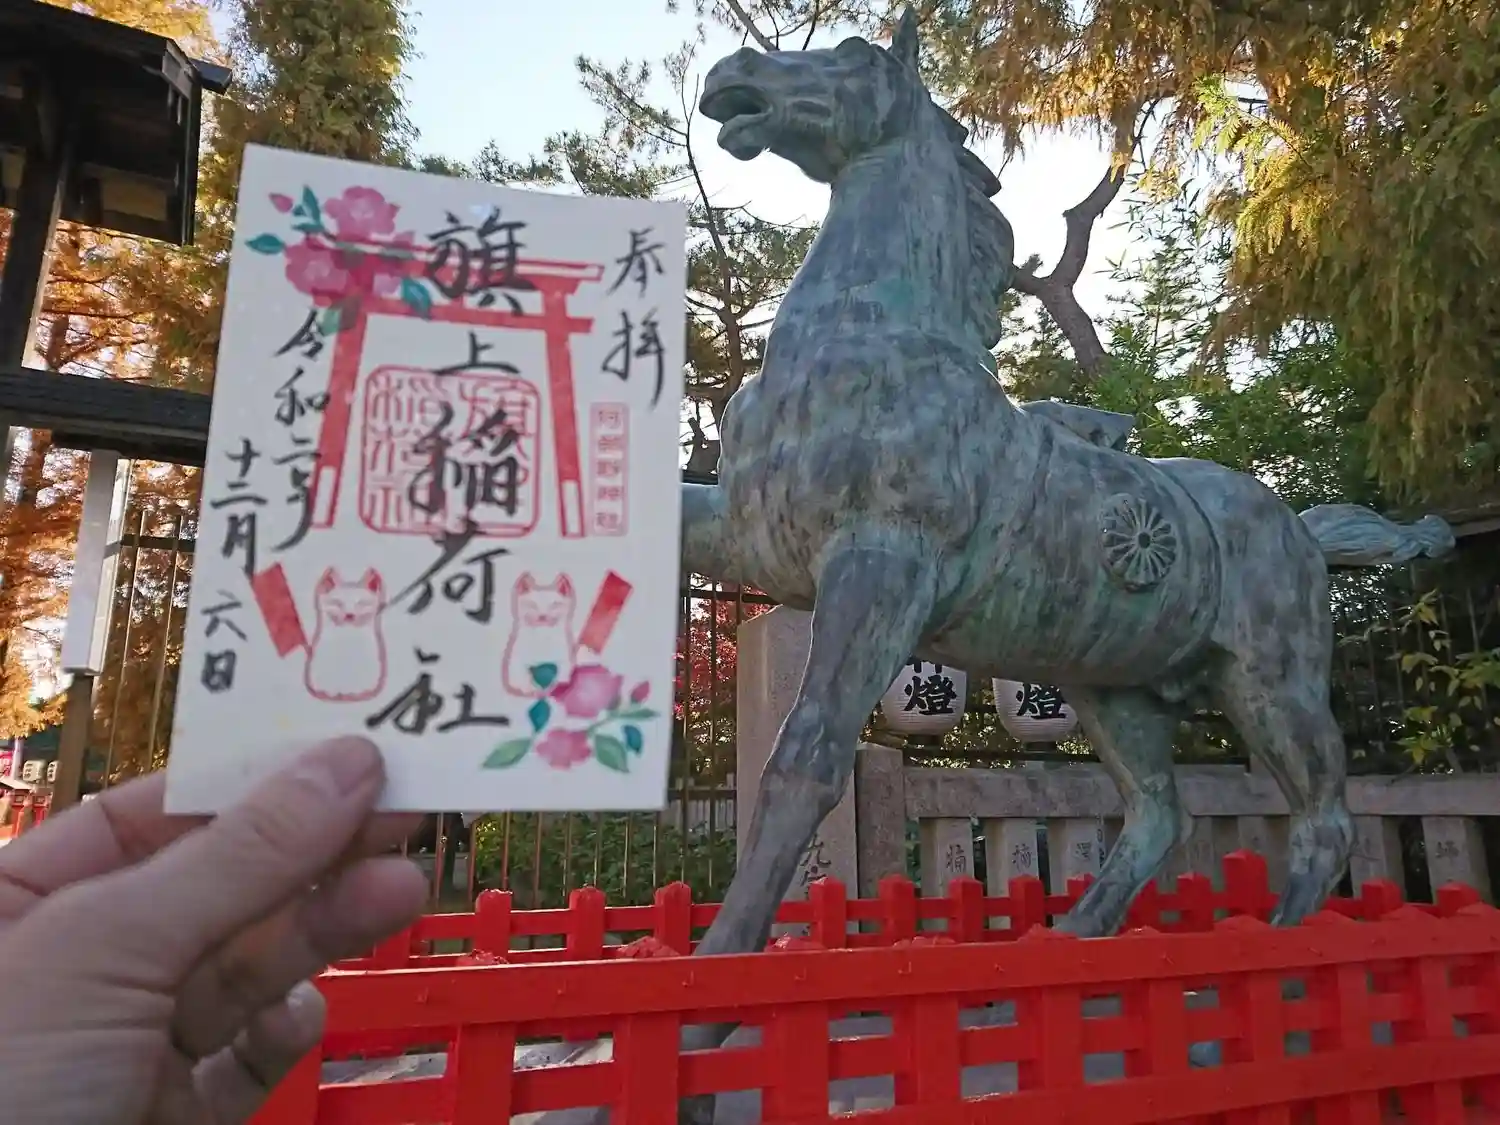 奉拝
阿部野神社
旗上稲荷社
旗上
稲荷社
令和二年
十二月六日
燈
燈